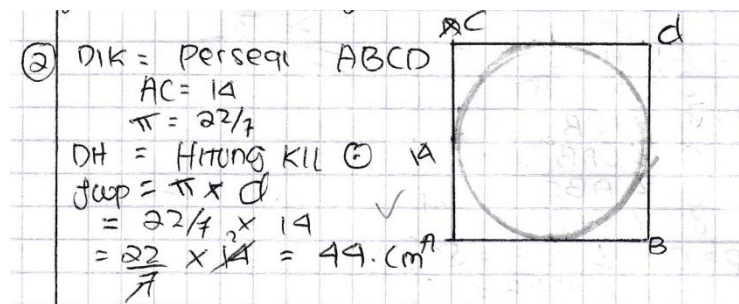 ② DIK = Persegi ABCD
AC = 14
π = 22/7
DH = Hitung Kll ⊙
Jwp = π x d
= 22/7 x 14
= 22/7 x 14 2 = 44. Cm
C d
14
A B